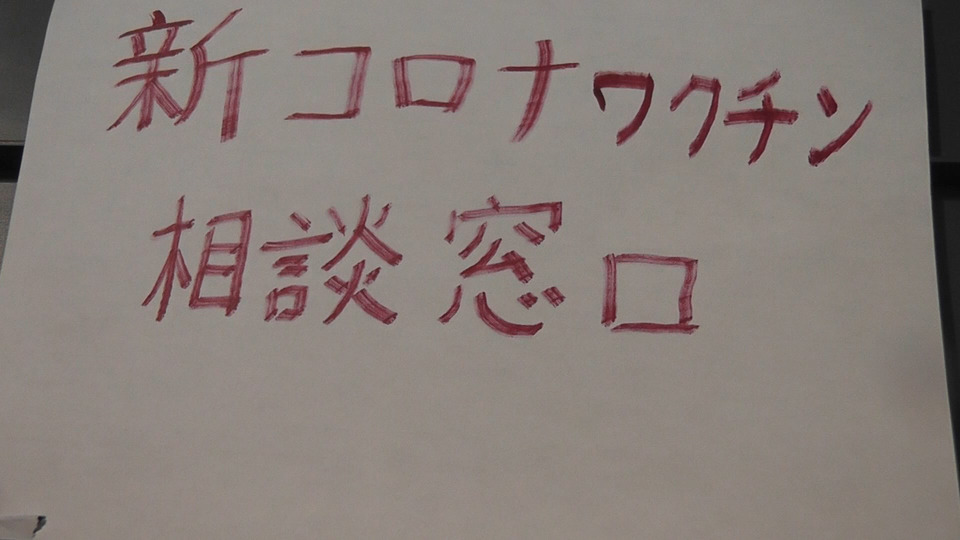 新コロナワクチン
相談窓口